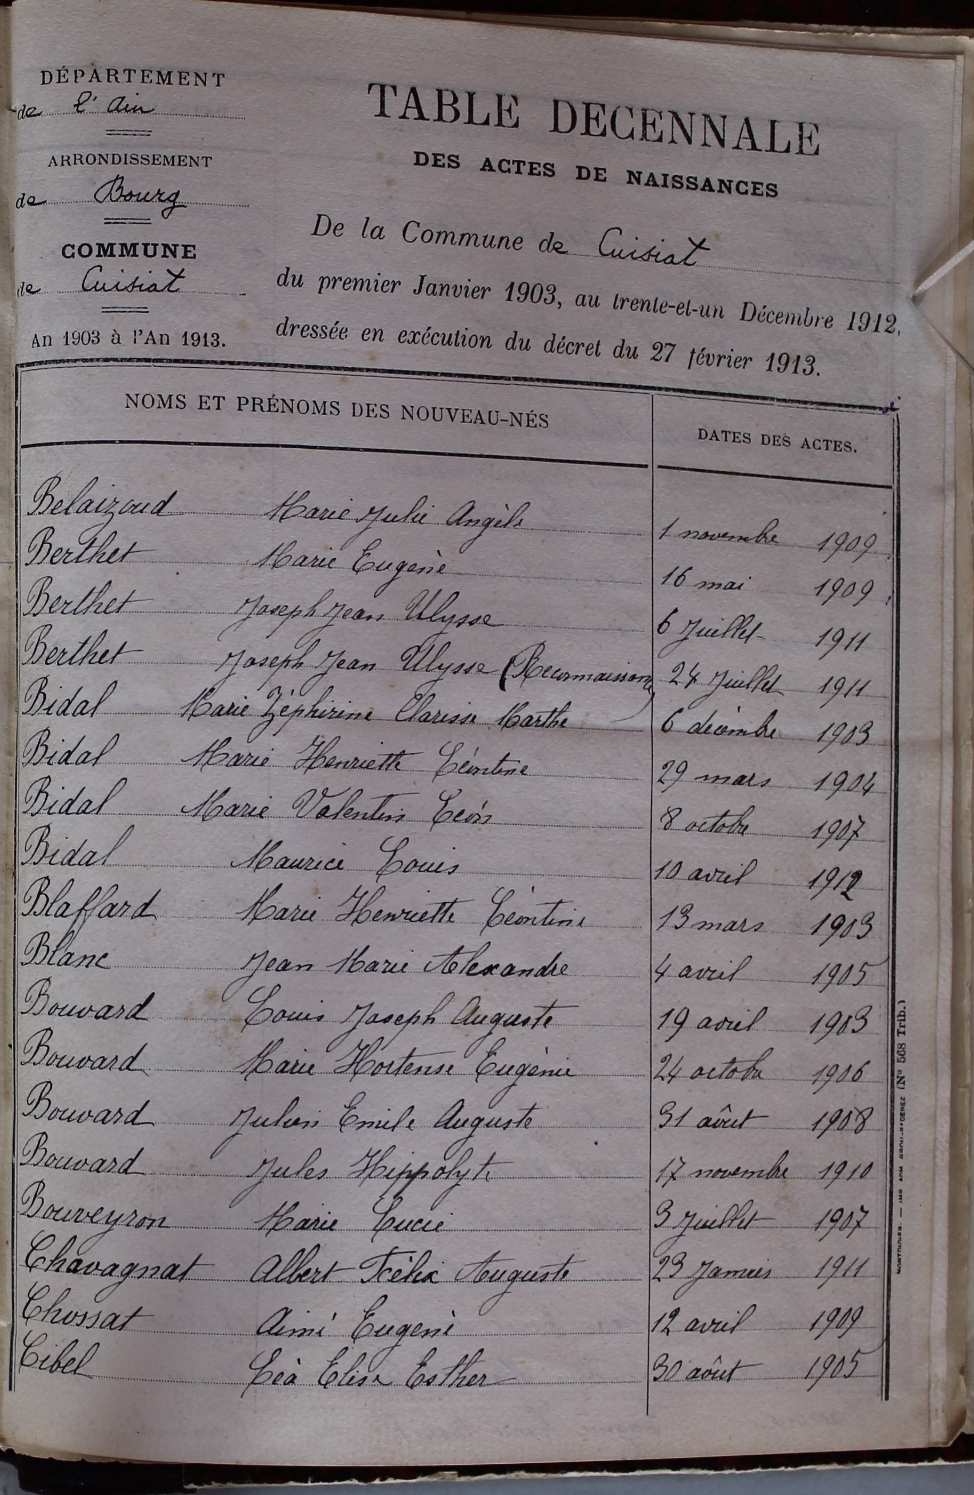 DÉPARTEMENT
de l'Ain
ARRONDISSEMENT
de Bourg
COMMUNE
de Cuisiat
An 1903 à l'An 1913.
TABLE DECENNALE
DES ACTES DE NAISSANCES
De la Commune de Cuisiat
du premier Janvier 1903, au trente-et-un Décembre 1912,
dressée en exécution du décret du 27 février 1913.
NOMS ET PRÉNOMS DES NOUVEAU-NÉS DATES DES ACTES.
Belaizoud Marie Julie Angèle 1 novembre 1909
Berthet Marie Eugène 16 mai 1909
Berthet Joseph Jean Ulysse 6 Juillet 1911
Berthet Joseph Jean Ulysse (Reconnaissance) 24 Juillet 1911
Bidal Marie Zéphirine Clarisse Marthe 6 décembre 1903
Bidal Marie Henriette Léontine 29 mars 1904
Bidal Marie Valentin Léon 8 octobre 1907
Bidal Maurice Louis 10 avril 1912
Blaffard Marie Henriette Léontine 13 mars 1903
Blanc Jean Marie Alexandre 4 avril 1905
Bouvard Louis Joseph Auguste 19 avril 1903
Bouvard Marie Hortense Eugénie 24 octobre 1906
Bouvard Julien Emile Auguste 31 aôut 1908
Bouvard Jules Hippolyte 17 novembre 1910
Bouveyron Marie Lucie 3 Juillet 1907
Chavagnat Albert Félix Auguste 23 Janvier 1911
Chossat Aimé Eugène 12 avril 1909
Cibel Léa Elise Esther 30 aôut 1905
(N° 568 Trib.)